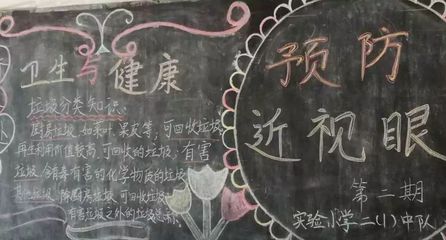 卫生与健康
垃圾分类知识:
厨房垃圾,如菜叶、果皮等;可回收垃圾
再生利用价值较高,可回收的垃圾;有害
垃圾,含有毒有害的化学物质的垃圾
其他垃圾,除厨房垃圾、可回收垃圾、
有害垃圾之外的垃圾
预防
近视眼
第二期
实验小学二(1)中队